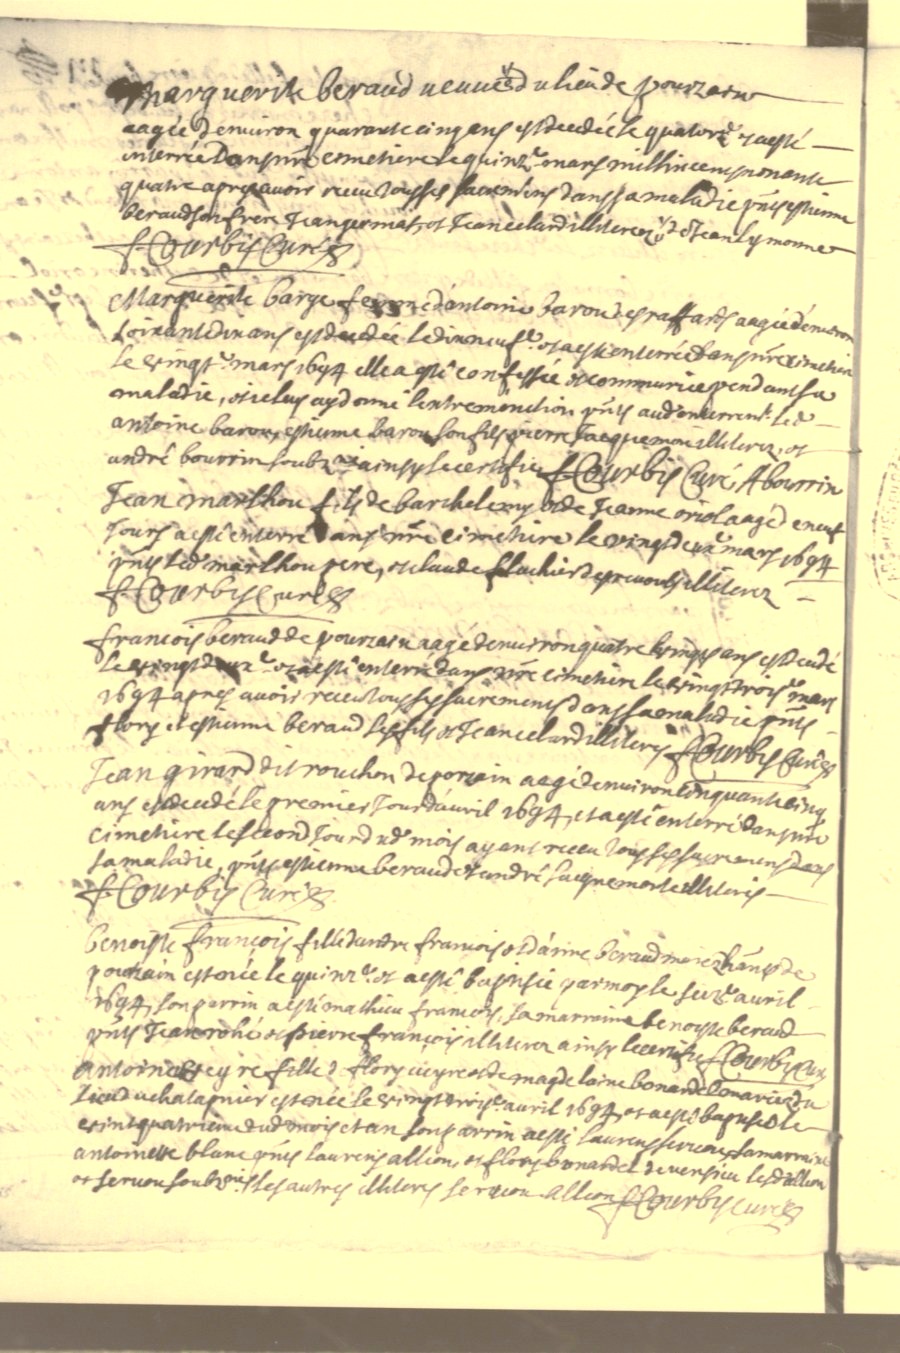 Marguerite beraud veuve du lieu de pourzain
aagée denviron quarante cinq ans est decedée le quatorze et a esté
interrée dans nre cimetiere le quinze mars mil six cens nonante
quatre apres avoir receu tous ses sacremens dans sa maladie pnts estienne
beraud son frere Jean et Jean celard illiterez et Jean lymonne
Courbis Curé
Marguerite barge femme d'antoine barou des raffards aagée denviron
soixante dix ans est decedée le dixneufe et a esté enterrée dans nre cimetiere
le vingte mars 1694 elle a esté confessée et communiée pendant sa
maladie, et je luy ay donné l'extremonction pnts aud enterremt led
antoine barou, estienne barou son fils pierre Jacquemon illiterez, et
andré bourrin soubzné ainsy le certifie Courbis Curé Abourrin
Jean marthou fils de barthelemy et de Jeanne oriol aagé de neuf
Jours a esté enterré dans nre cimetiere le vingt deuxe mars 1694
pnts led marthou pere, et claude flachier illiterez
Courbis Curé
francois beraud de pourzain aagé denviron quatre vingts ans est decedé
le vingt deuxe et a esté enterré dans nre cimetiere le vingt troise mars
1694 apres avoir receu tous ses sacremens dans sa maladie pnts
flory et estienne beraud ses fils et Jean celard illiterés Courbis Curé
Jean girard dit rouchon de porzain aagé denviron cinquante cinq
ans est decedé le premier Jour d'avril 1694, et a esté enterré dans nre
cimetiere le second Jour dud mois ayant receu tous ses sacremens dans
sa maladie, pnts estienne beraud et andré Jacquemont illiterés
Courbis Curé
benoiste françois fille d'andre francois et d'anne beraud mariez de
pourzain est née le quinze et a esté baptisée par moy le seize avril
1694, son parrin a esté mathieu francois, sa marraine benoyste beraud
pnts Jean rohé et pierre françois illiterez ainsy le certifie Courbis Curé
antoinette veyre fille de flory veyre et de magdelaine bonardel mariez du
lieu du chatagnier est née le vingt troise avril 1694, et a esté baptisée le
vint quatrieme dud mois et an son parrin a esté laurens servou, sa marraine
antoinette blanc pnts laurens allion, et flory bonardel de versieu lesd allion
et servou soubznés les autres illiterés servou allion Courbis Curé